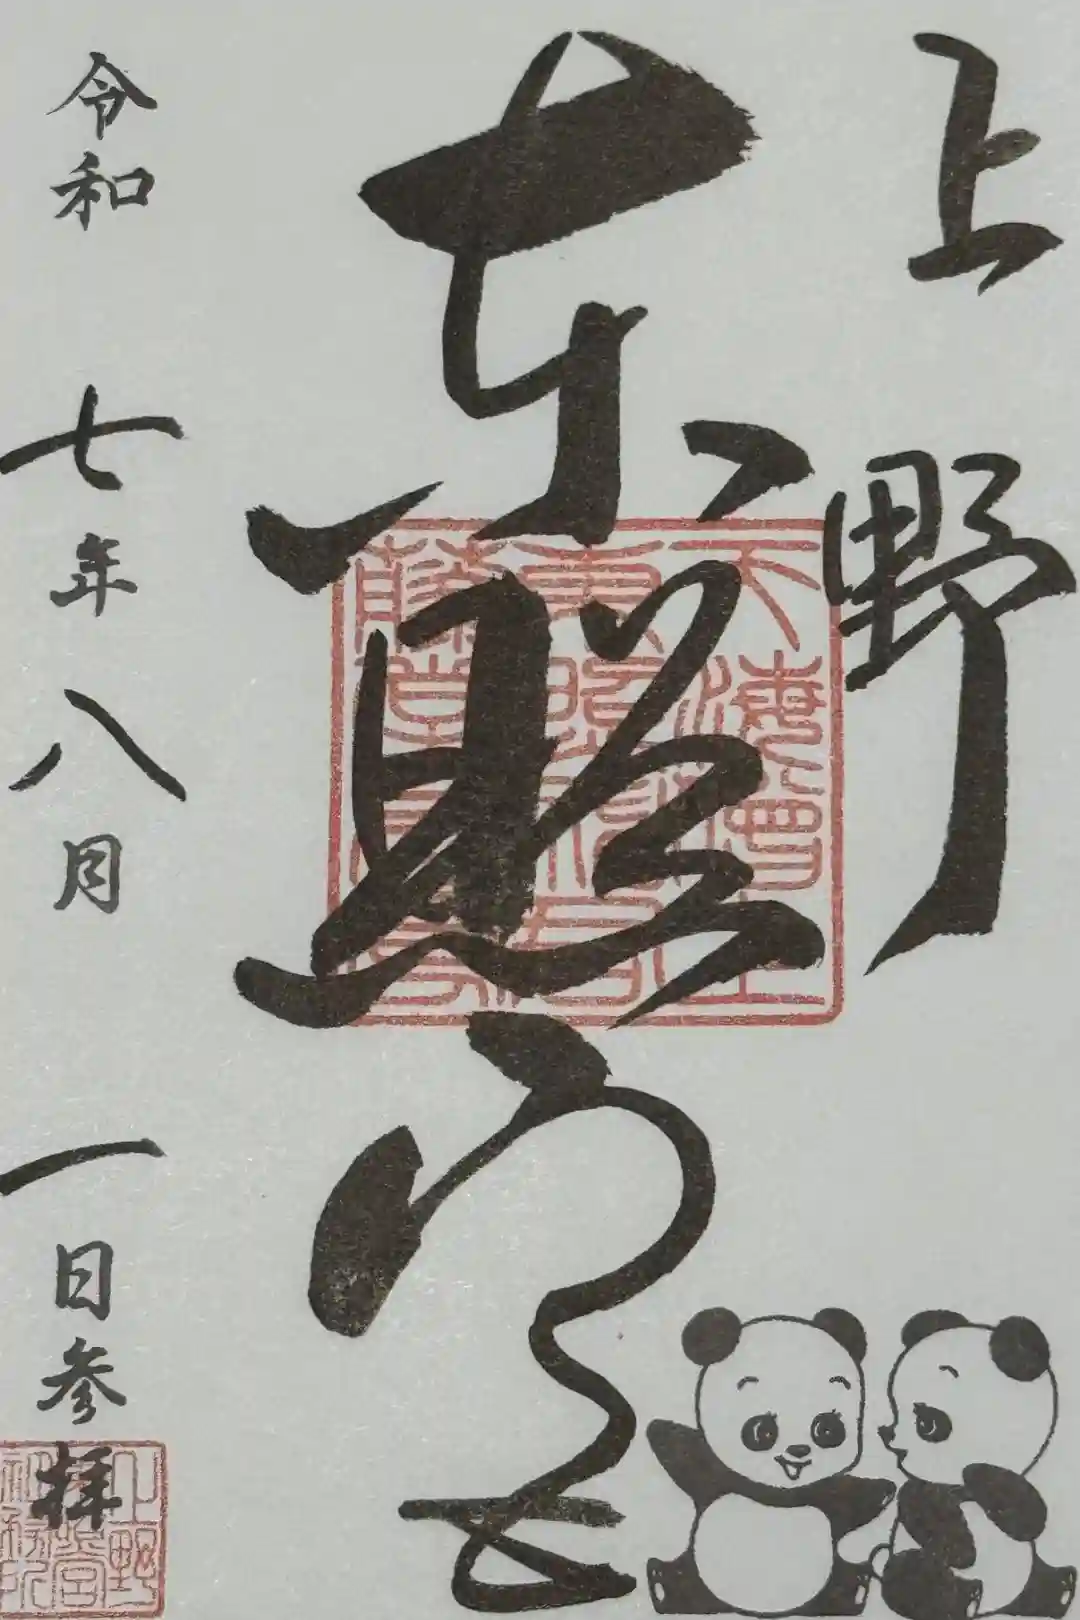 上野
東照宮
令和 七年 八月 一日参拝